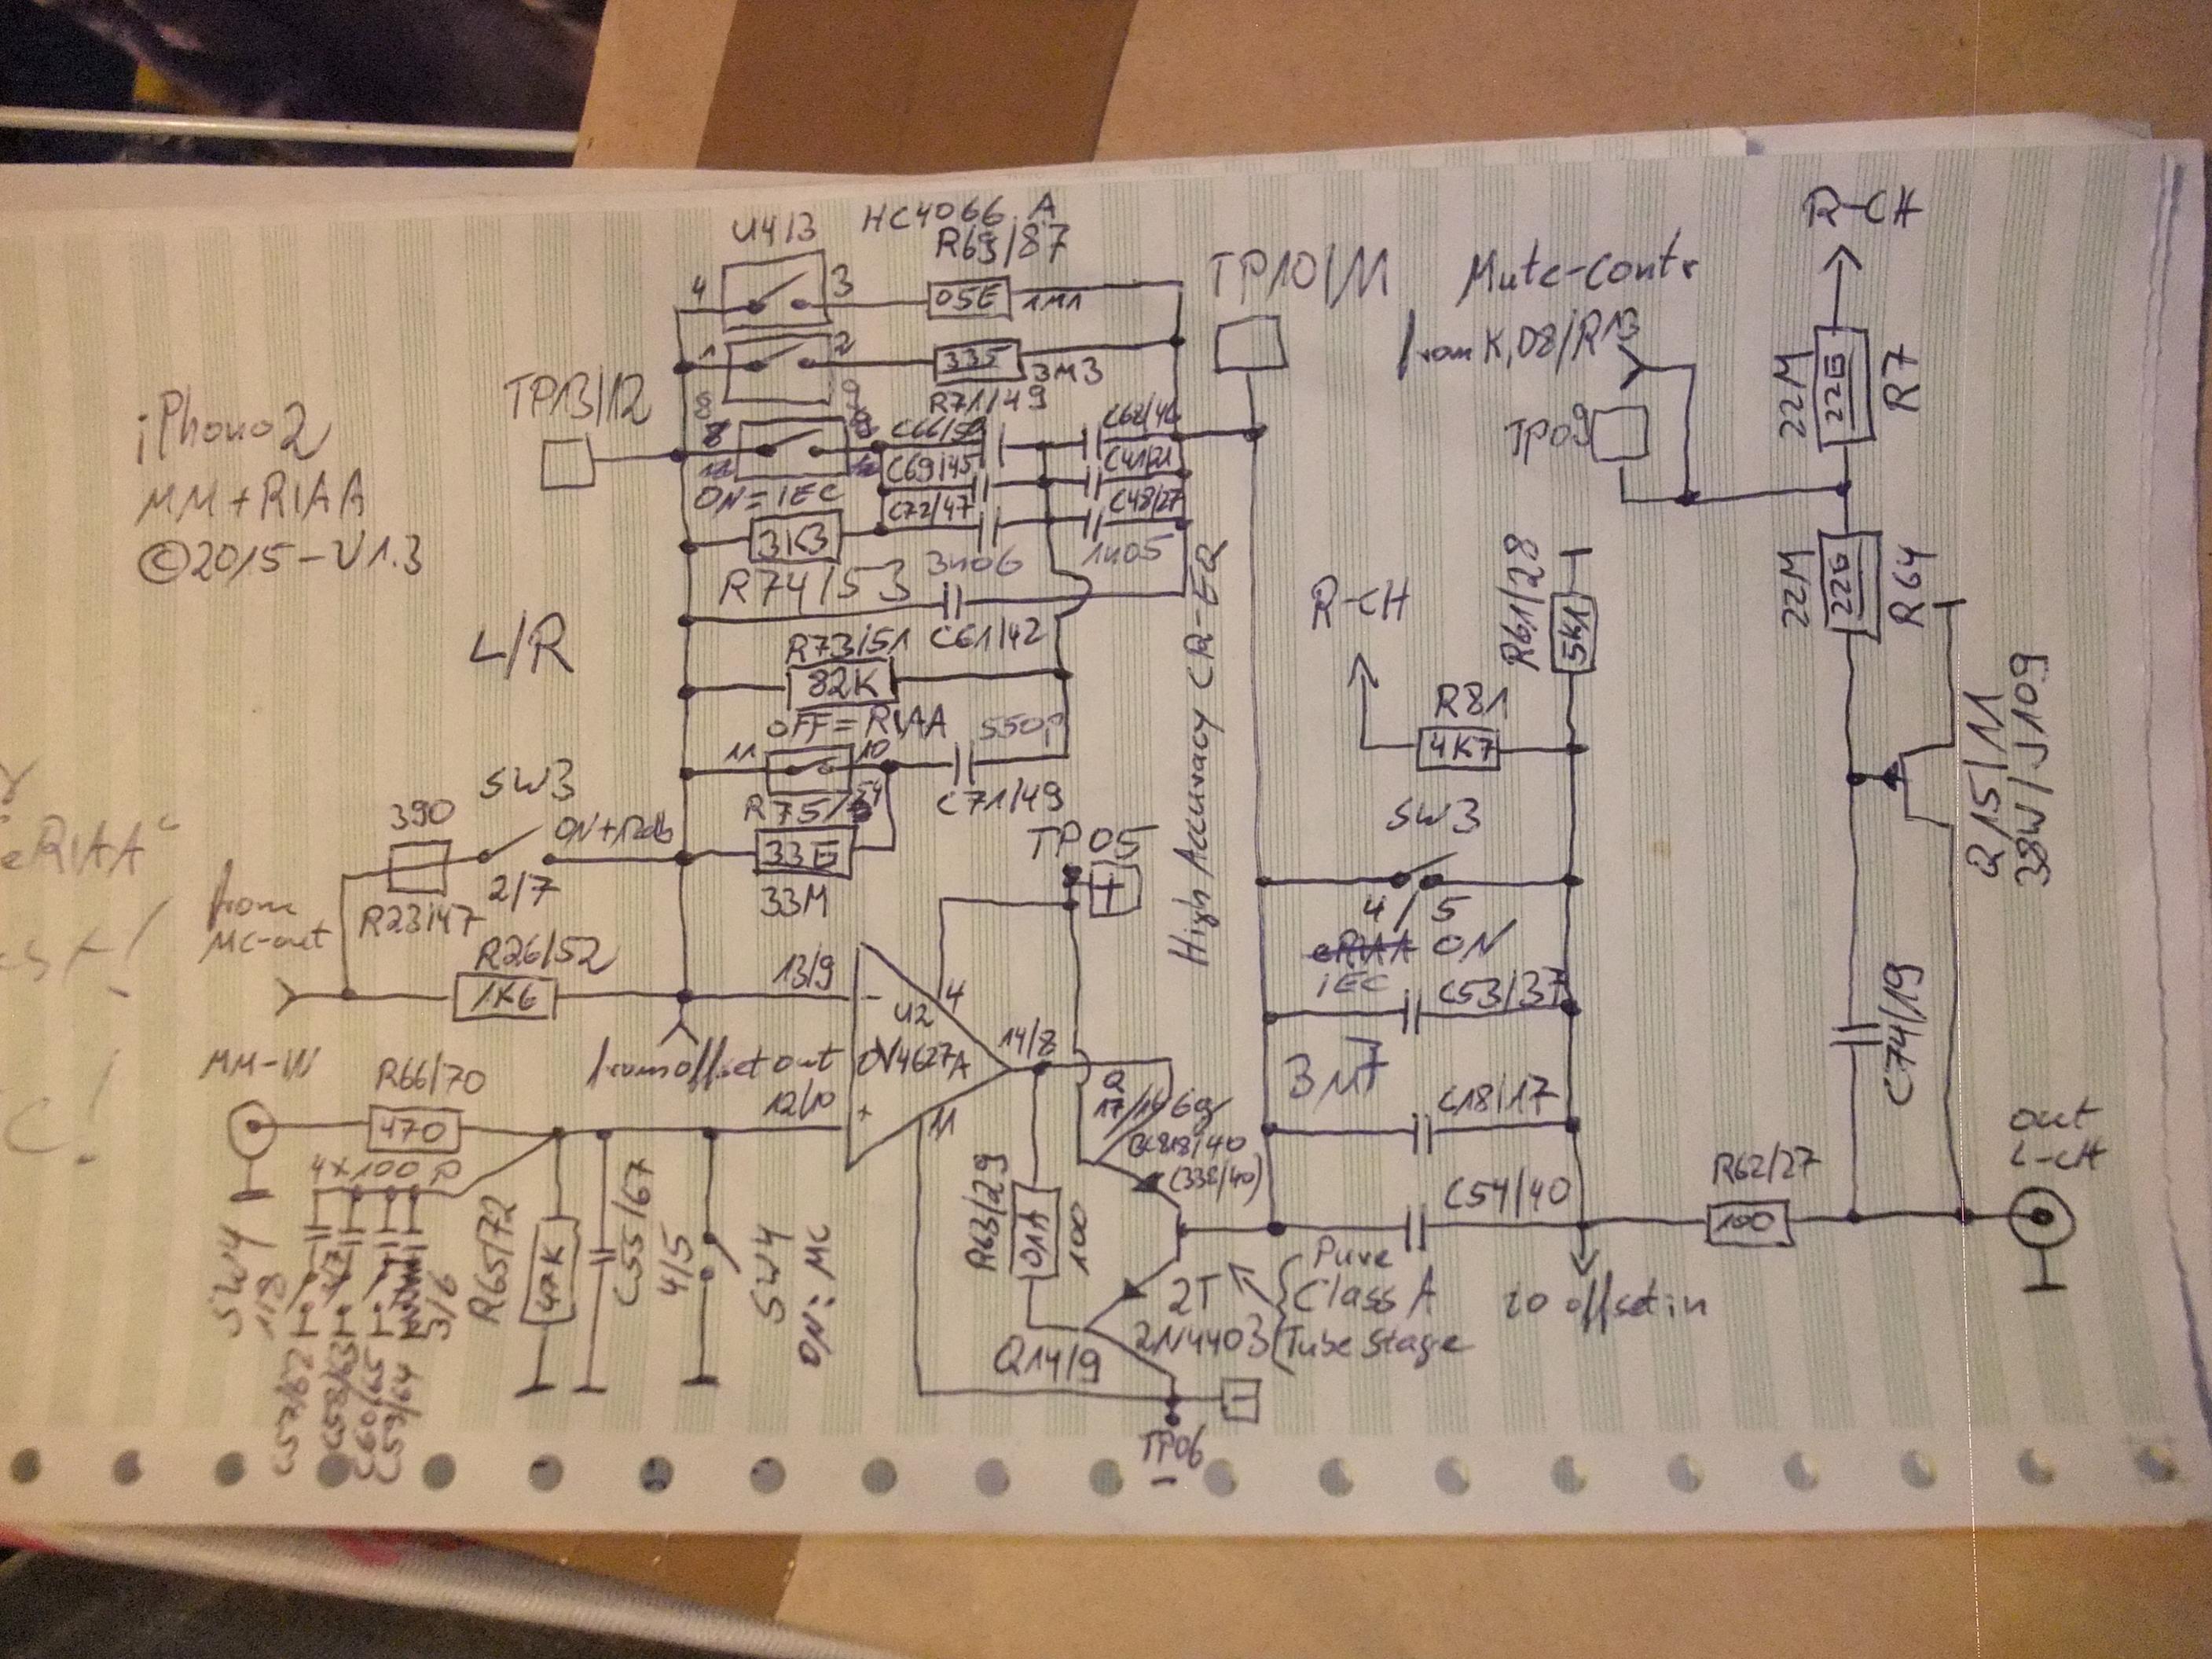 iPhono2
MM+RIAA
©2015-V1.3
L/R
U4/3
HC4066 A
R69/87
4
3
05E
1M1
1
2
335
3M3
R71/49
TP13/12
8
9
ON=IEC
C69/45
C72/47
C41/21
C48/27
3K3
R74/53
3n06
1n05
C61/42
R73/51
82K
OFF=RIAA
11
10
550p
C71/49
R75/54
33E
33M
TP10/11
High Accuracy CR-EQ
Mute-Contr
from K,D8/R13
TP09
R-CH
22M
22E
R7
22M
226
R64
R61/28
5K1
R-CH
R81
4K7
SW3
4/5
ON
iEC
C53/37
C18/17
C54/40
Q15/11
38W/J109
C74/19
SW3
390
ON+12db
2/7
R23/47
from
MC-out
R26/52
1K6
13/9
-
U2
OV4627A
4
14/8
12/10
+
11
TP05
+
from offset out
MM-IN
R66/70
470
4x100 P
SW4
1/8
3/6
C57/62
C58/63
C60/65
C59/64
R65/72
47K
C55/67
4/5
SW4
ON: MC
R63/29
01A
100
Q
17/16
(338/40)
2T
2N4403
Q14/9
-
TP06
-
Pure
Class A
Tube Stage
to offset in
R62/27
100
out
L-CH
eRIAA"